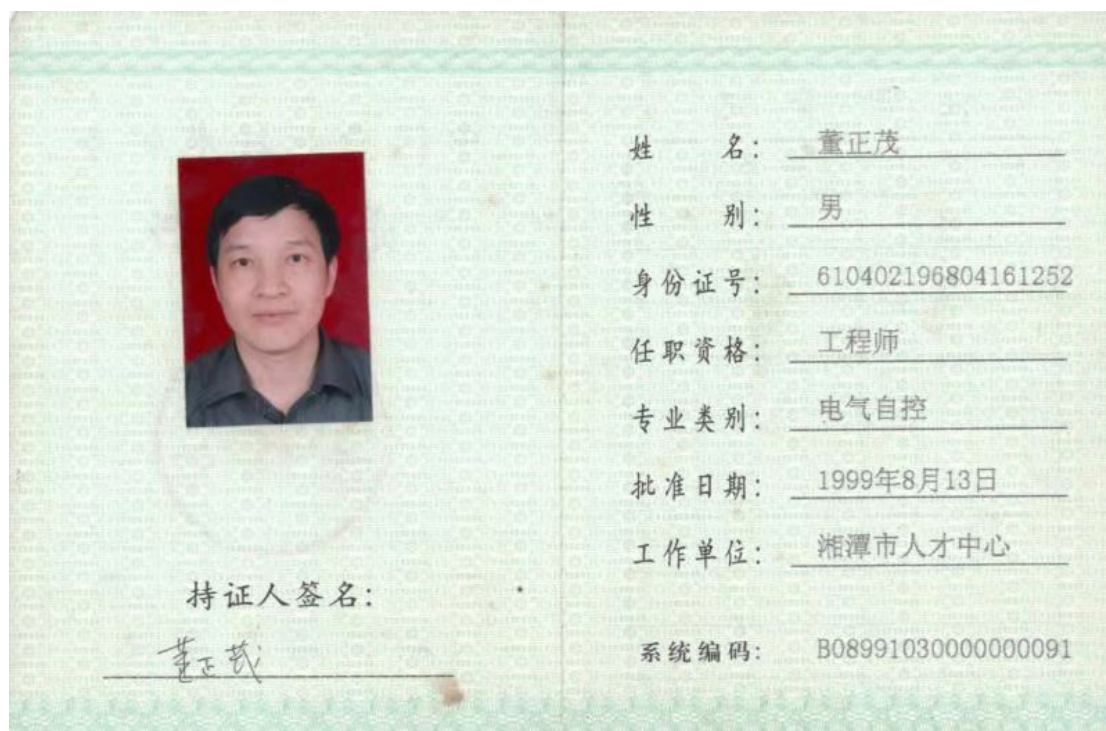 姓 名：董正茂
性 别：男
身份证号：610402196804161252
任职资格：工程师
专业类别：电气自控
批准日期：1999年8月13日
工作单位：湘潭市人才中心
系统编码：B08991030000000091
持证人签名：
董正茂